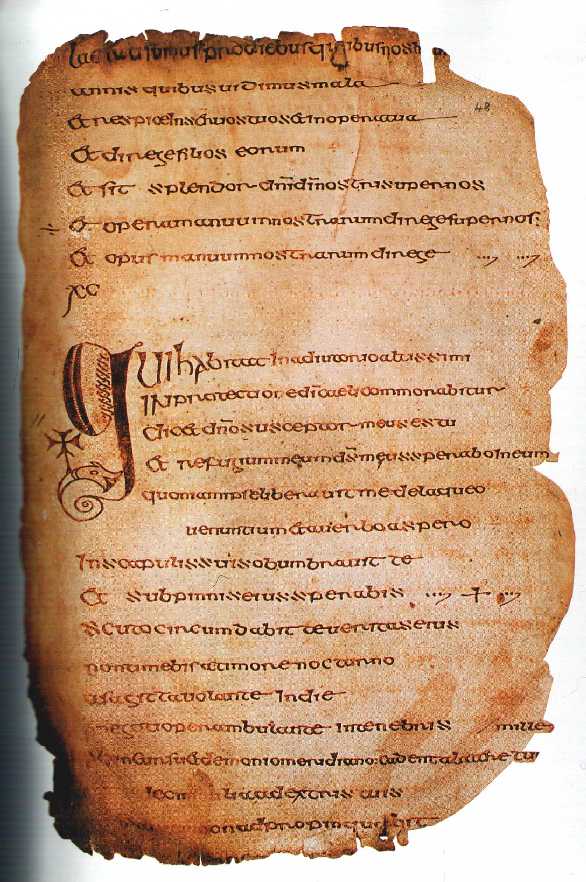 pro diebus quibus nos
annis quibus uidimus mala
48
& respice in seruos tuos & in opera tua
& dirige filios eorum
& sit splendor dni di nostri super nos
& opera manuum nostrarum dirige super nos:
& opus manuum nostrarum dirige
xc
Qui habitat in adiutorio altissimi
in protectione di caeli commorabitur
dic& dno susceptor meus es tu
& refugium meum ds meus sperabo in eum
quoniam ipse liberauit me de laqueo
uenantium & a uerbo aspero
In scapulis suis obumbrauit te
& sub pinnis eius sperabis
scuto circumdabit te ueritas eius
non timebis a timore nocturno
a sagitta uolante in die
negotio perambulante in tenebris mille
incursu & demonio meridiano: cadent a latere tu
milia a dextris tuis
non adpropinquabit